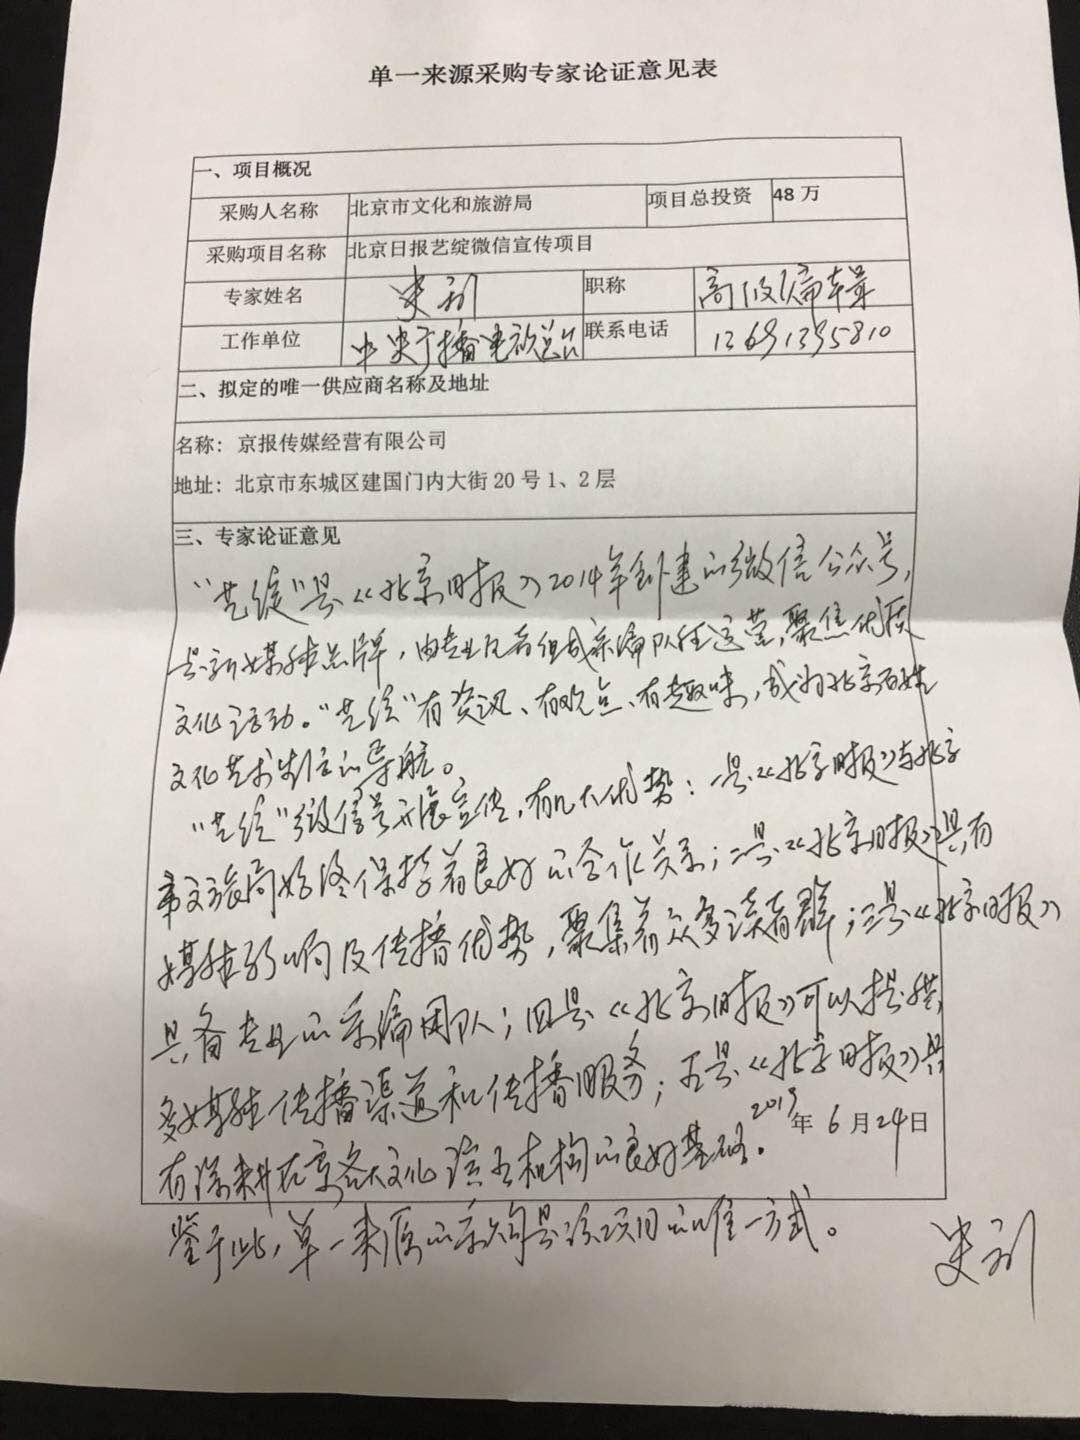 单一来源采购专家论证意见表
一、项目概况
采购人名称 北京市文化和旅游局 项目总投资 48万
采购项目名称 北京日报艺绽微信宣传项目
专家姓名 史利 职称 高级编辑
工作单位 中央广播电视总台 联系电话 13691395810
二、拟定的唯一供应商名称及地址
名称：京报传媒经营有限公司
地址：北京市东城区建国门内大街20号1、2层
三、专家论证意见
“艺绽”是《北京日报》2014年创建的微信公众号，
是新媒体品牌，由专业记者组成采编队伍运营，聚焦优质
文化活动。“艺绽”有资讯、有观点、有趣味，成为北京百姓
文化艺术生活的导航。
“艺绽”微信号开展宣传，有几大优势：一是《北京日报》与北京
市文旅局始终保持着良好的合作关系；二是《北京日报》具有
媒体影响及传播优势，聚集着众多读者群；三是《北京日报》
具备专业的采编团队；四是《北京日报》可以提供
多媒体传播渠道和传播服务；五是《北京日报》具
2019年6月24日
有深耕在京各大文化演出机构的良好基础。
鉴于此，单一来源的采购是该项目的唯一方式。
史利